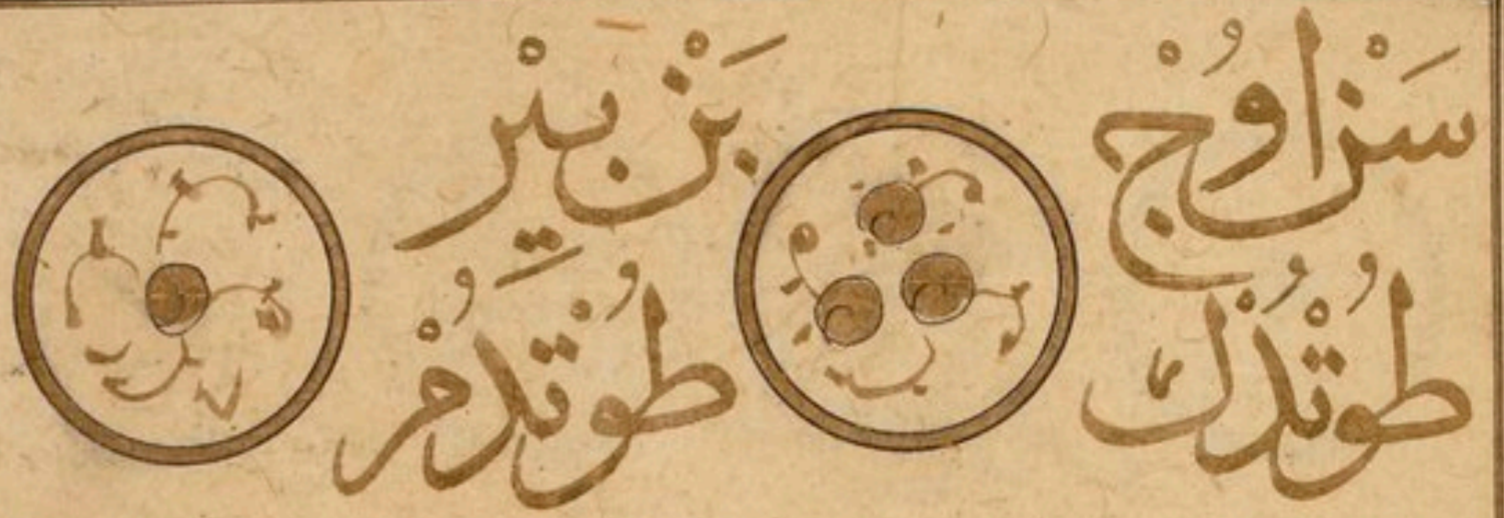 سَنْ اوُجْ
طُوتْدُكْ
بَنْ بِيْر
طُوتْدُمْ